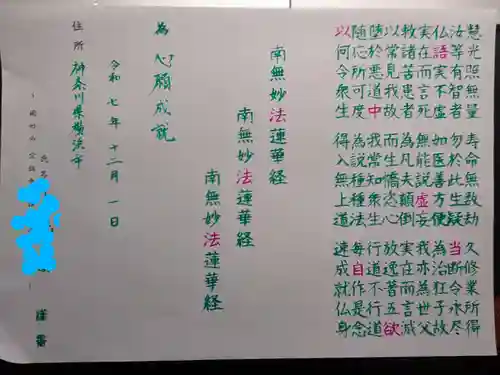 慧光照無量 寿命無数劫 久修業所得
汝等有智者 勿於此生疑 当断令永尽
仏語実不虚 如医善方便 為治狂子故
実在而言死 無能説虚妄 我亦為世父
救諸苦患者 為凡夫顛倒 実在而言滅
以常見我故 而生憍恣心 放逸著五欲
堕於悪道中 我常知衆生 行道不行道
随応所可度 為説種種法 毎自作是念
以何令衆生 得入無上道 速成就仏身
南無妙法蓮華経
南無妙法蓮華経
南無妙法蓮華経
為 心願成就
令和 七年 十二月 一日
住所 神奈川県横浜市